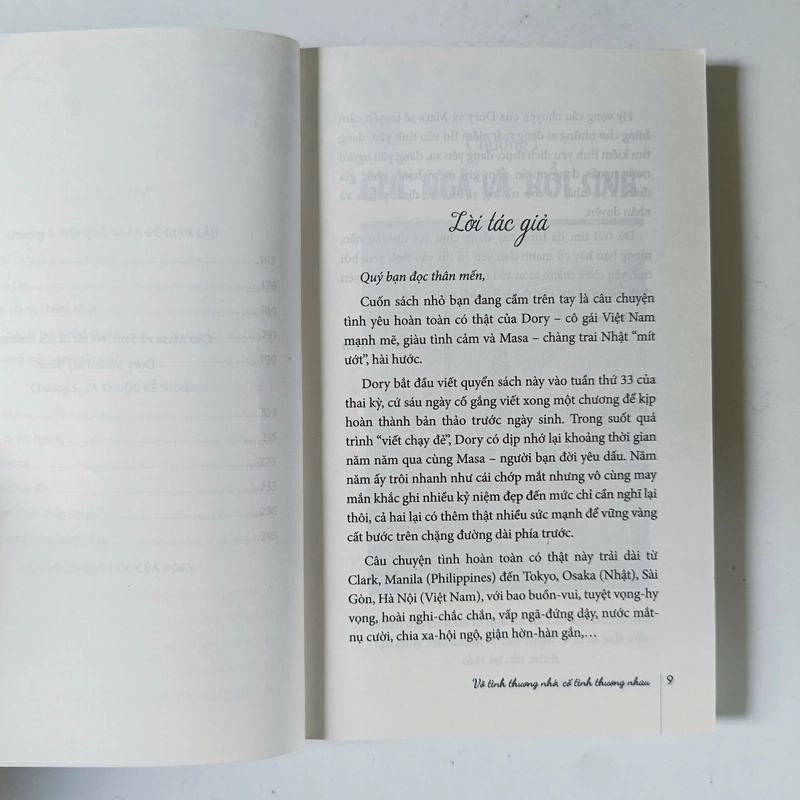 Lời tác giả
Quý bạn đọc thân mến,
Cuốn sách nhỏ bạn đang cầm trên tay là câu chuyện
tình yêu hoàn toàn có thật của Dory – cô gái Việt Nam
mạnh mẽ, giàu tình cảm và Masa – chàng trai Nhật “mít
ướt”, hài hước.
Dory bắt đầu viết quyển sách này vào tuần thứ 33 của
thai kỳ, cứ sáu ngày cố gắng viết xong một chương để kịp
hoàn thành bản thảo trước ngày sinh. Trong suốt quá
trình “viết chạy đẻ”, Dory có dịp nhớ lại khoảng thời gian
năm năm qua cùng Masa – người bạn đời yêu dấu. Năm
năm ấy trôi nhanh như cái chớp mắt nhưng vô cùng may
mắn khắc ghi nhiều kỷ niệm đẹp đến mức chỉ cần nghĩ lại
thôi, cả hai lại có thêm thật nhiều sức mạnh để vững vàng
cất bước trên chặng đường dài phía trước.
Câu chuyện tình hoàn toàn có thật này trải dài từ
Clark, Manila (Philippines) đến Tokyo, Osaka (Nhật), Sài
Gòn, Hà Nội (Việt Nam), với bao buồn-vui, tuyệt vọng-hy
vọng, hoài nghi-chắc chắn, vấp ngã-đứng dậy, nước mắt-
nụ cười, chia xa-hội ngộ, giận hờn-hàn gắn,…
Vô tình thương nhớ, cố tình thương nhau 9